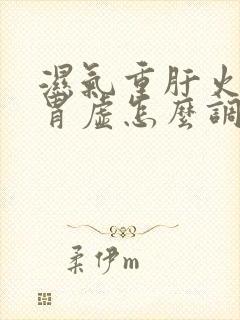 濕氣重肝火
胃虛怎麼調
柔伊m